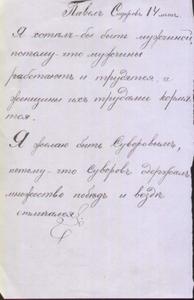 Павелъ Сидоровъ 14 лет.
Я хотѣлъ-бы быть мужчиной
потому-что мужчины
работаютъ и трудятся, а
женщины ихъ трудами кормят
тся.
Я желаю быть Суворовымъ,
потому-что Суворов одержалъ
множество побѣдъ и вездѣ
отличался.